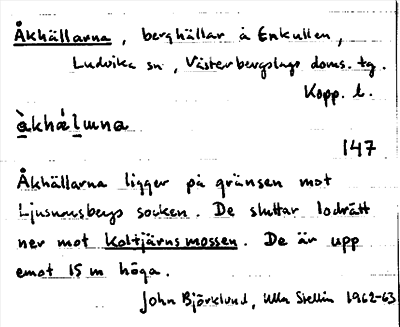 Åkhällarna, berghällar å Enkullen,
Ludvika sn, Västerbergslags doms. tg.
Kopp. l.
147
Åkhällarna ligger på gränsen mot
Ljusnarsbergs socken. De sluttar lodrätt
ner mot Koltjärnsmossen. De är upp
emot 15 m höga.
John Björklund, Ulla Stellin 1962-63